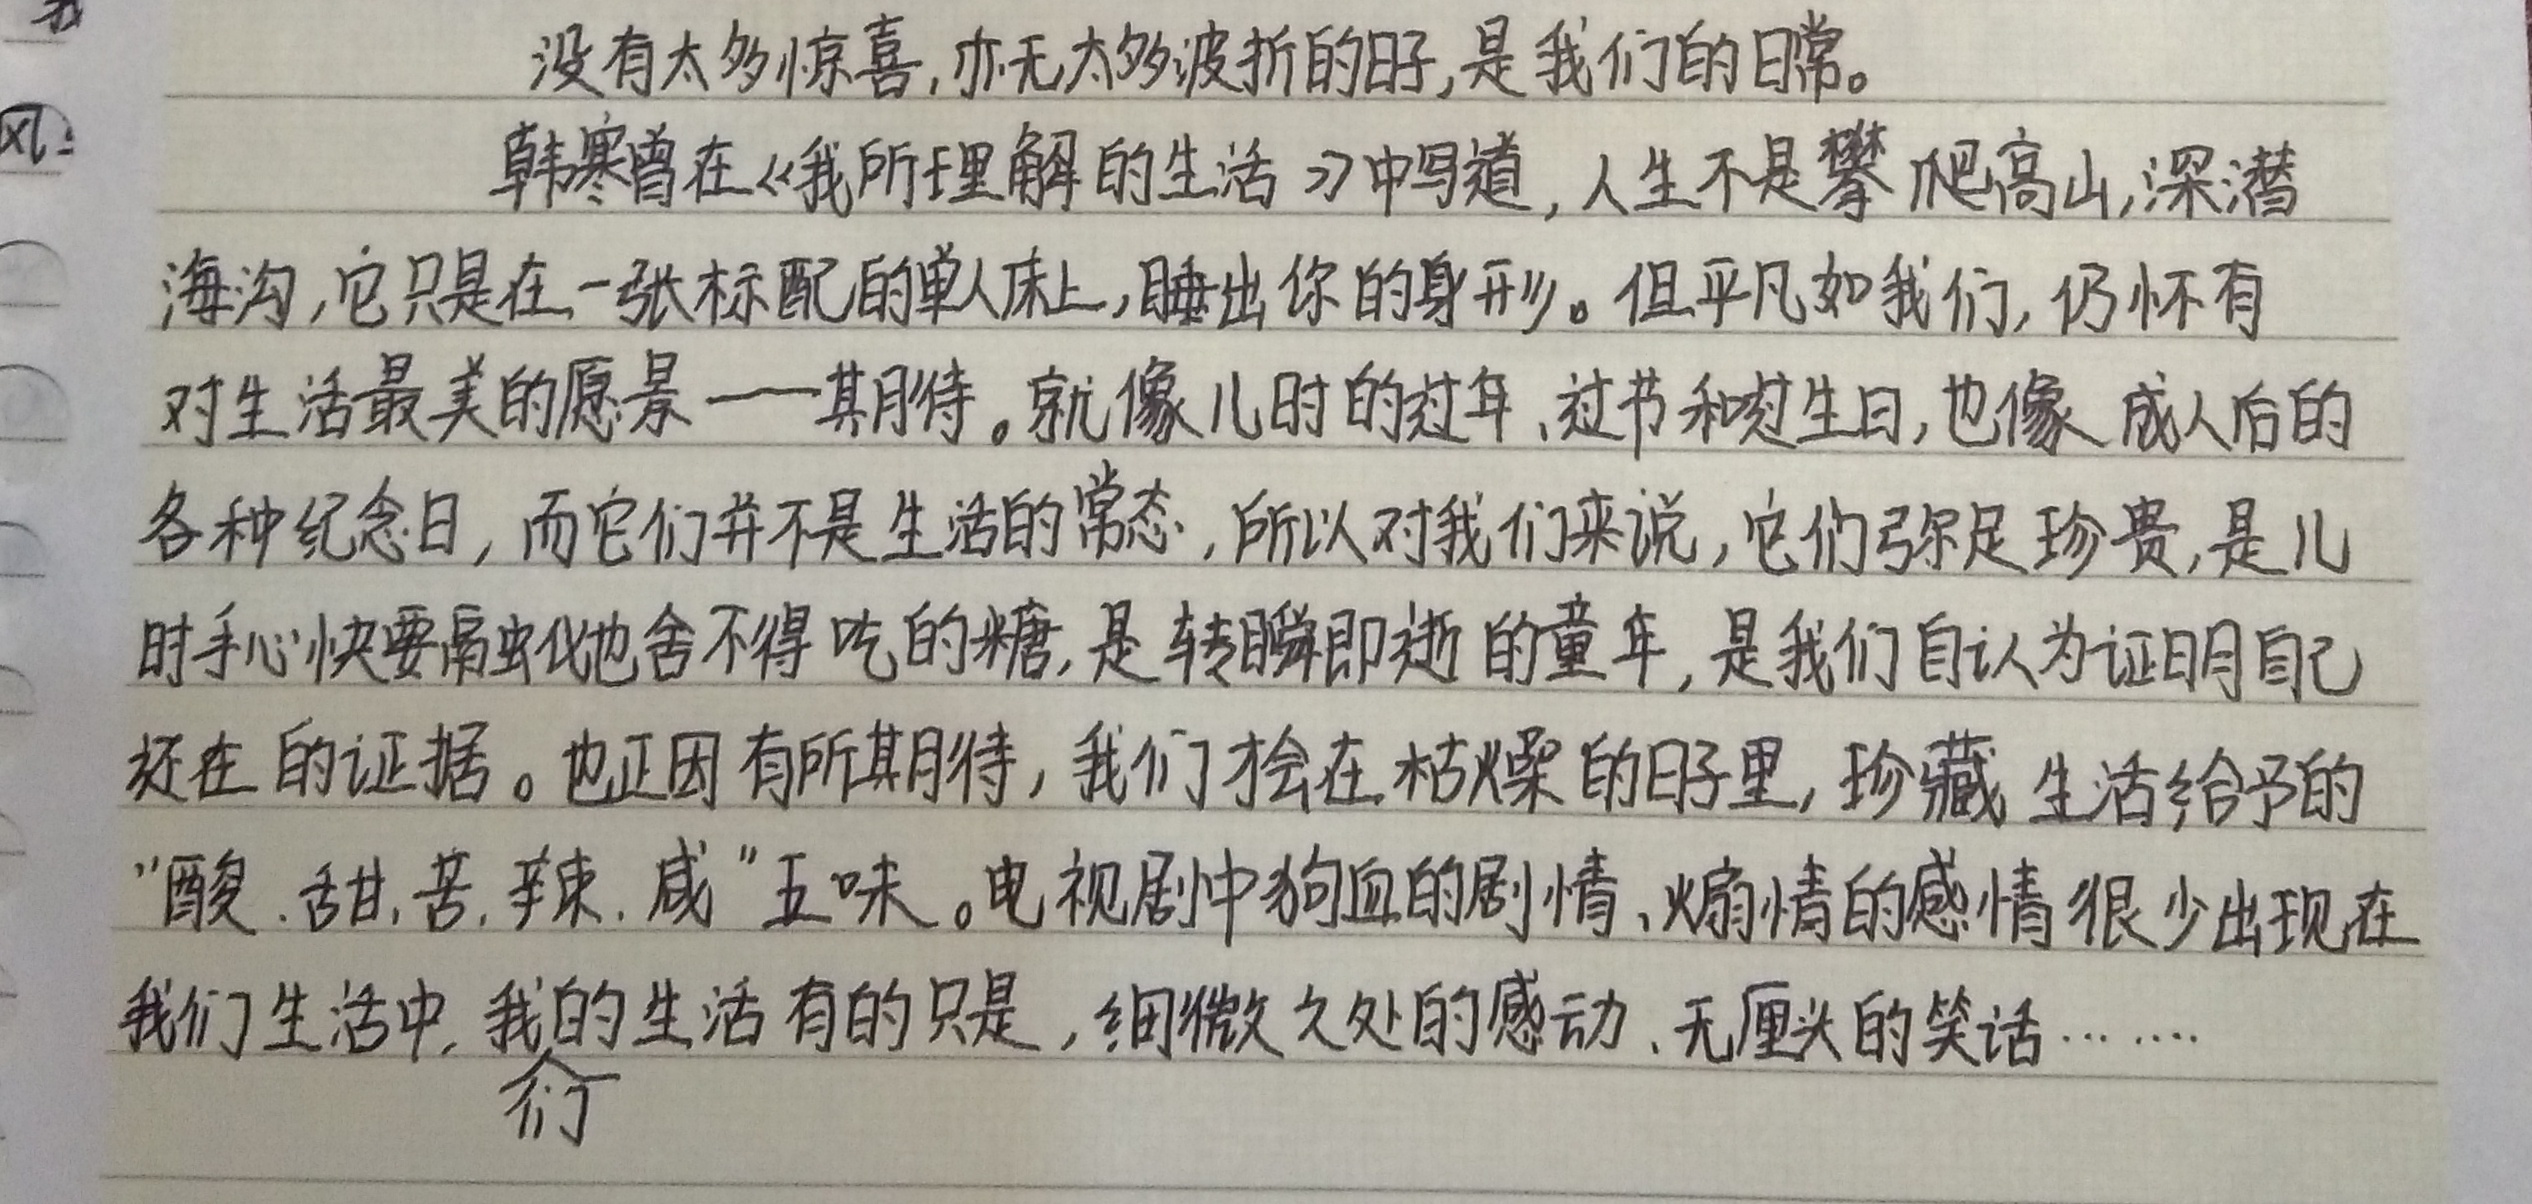 没有太多惊喜,亦无太多波折的日子,是我们的日常。
韩寒曾在《我所理解的生活》中写道,人生不是攀爬高山,深潜
海沟,它只是在一张标配的单人床上,睡出你的身形。但平凡如我们,仍怀有
对生活最美的愿景——期待。就像儿时的过年、过节和过生日,也像成人后的
各种纪念日,而它们并不是生活的常态,所以对我们来说,它们弥足珍贵,是儿
时手心快要融化也舍不得吃的糖,是转瞬即逝的童年,是我们自认为证明自己
还在的证据。也正因有所期待,我们才会在枯燥的日子里,珍藏生活给予的
"酸、甜、苦、辣、咸"五味。电视剧中狗血的剧情、煽情的感情很少出现在
我们生活中,我们的生活有的只是,细微之处的感动、无厘头的笑话……
风: